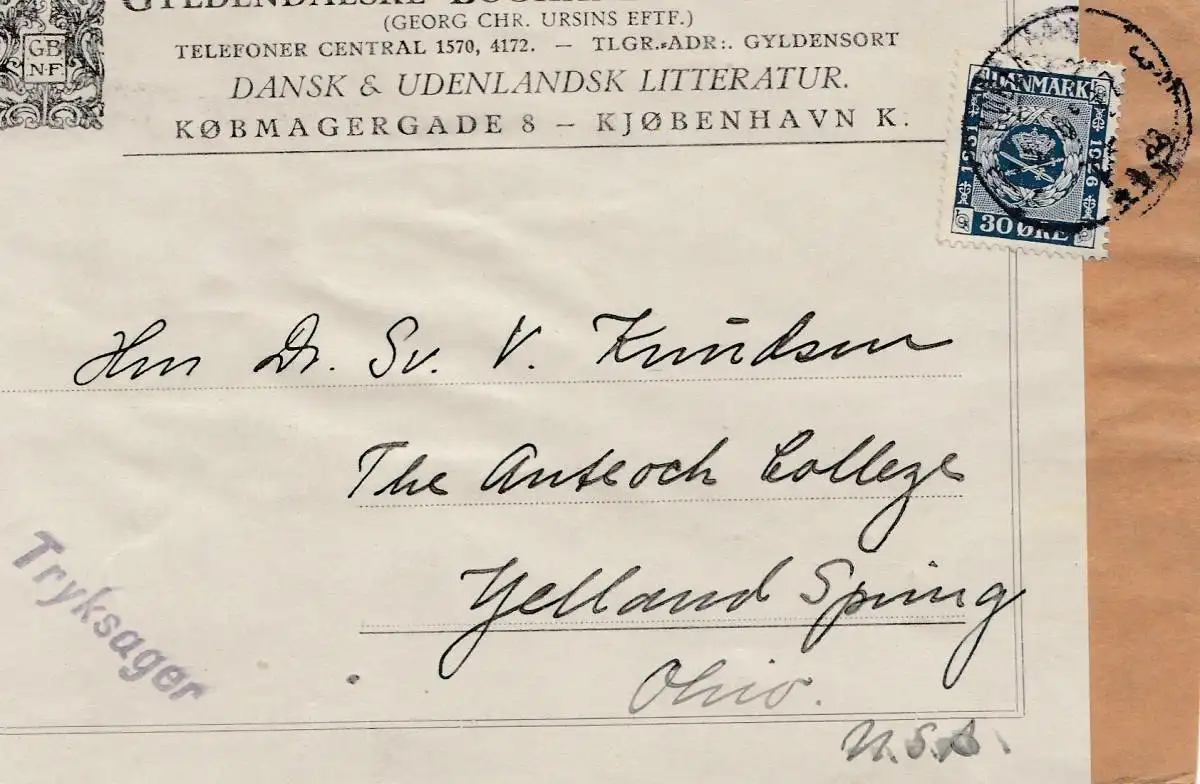 GYLDENDALSKE
(GEORG CHR. URSINS EFTF.)
TELEFONER CENTRAL 1570, 4172. — TLGR.-ADR.: GYLDENSORT
DANSK & UDENLANDSK LITTERATUR.
KØBMAGERGADE 8 — KJØBENHAVN K.
GB
NF
DANMARK
1851
1926
30 ØRE
Hrn Dr. Sv. V. Knudsen
The Anteoch College
Yelland Spring
Ohio.
U.S.A.
Tryksager